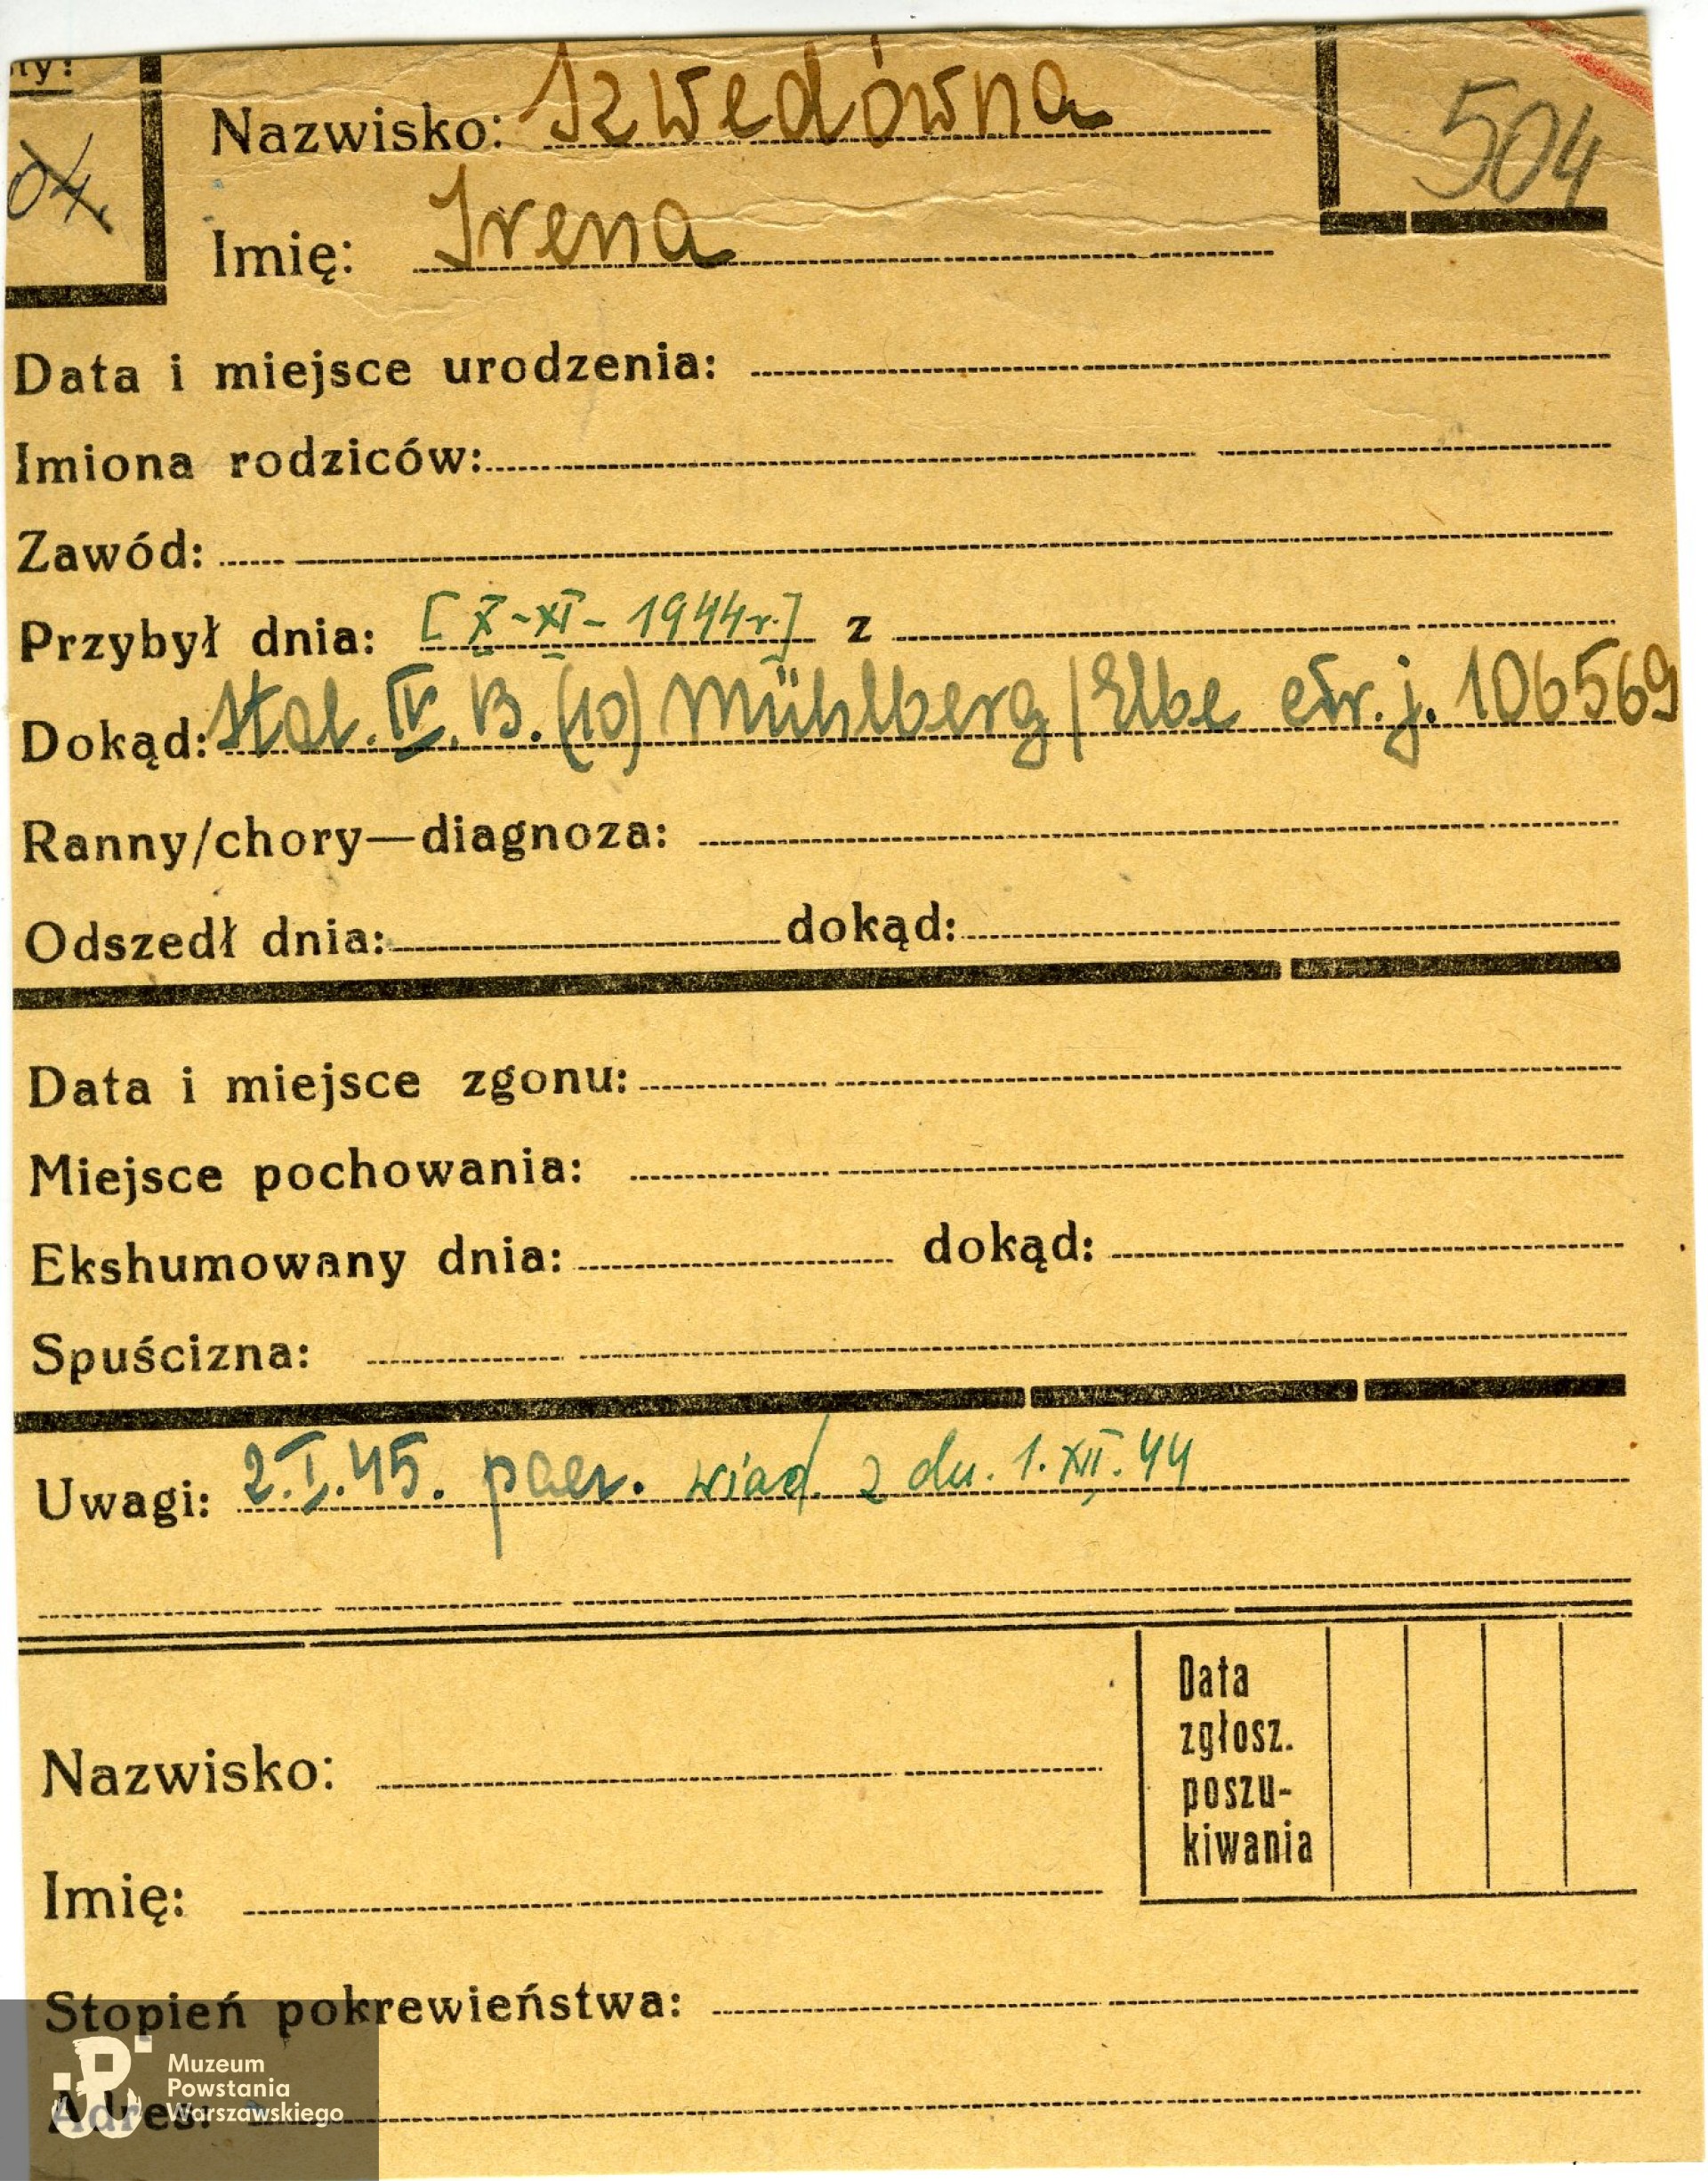 Nazwisko: Szwedówna
504
04.
Imię: Irena
Data i miejsce urodzenia:
Imiona rodziców:
Zawód:
Przybył dnia: [X-XI-1944r.] z
Dokąd: Stal. IV. B. (10) Mühlberg/Elbe j. 106569
Ranny/chory—diagnoza:
Odszedł dnia: dokąd:
Data i miejsce zgonu:
Miejsce pochowania:
Ekshumowany dnia: dokąd:
Spuścizna:
Uwagi: 2.I.45. wiad. z dn. 1.XII.44
Data
zgłosz.
poszu-
kiwania
Nazwisko:
Imię:
Stopień pokrewieństwa:
Adres:
Muzeum
Powstania
Warszawskiego